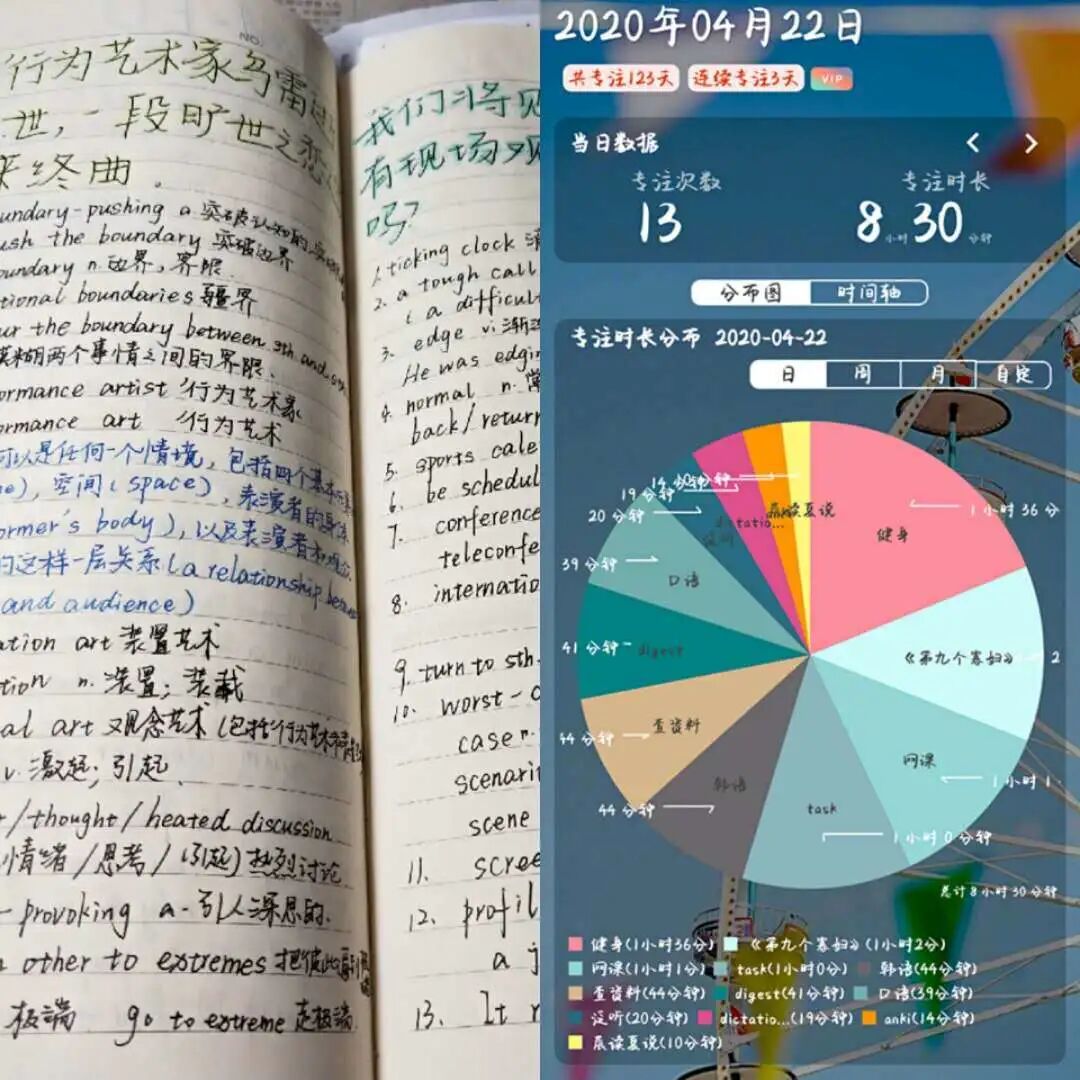 NO.
行为艺术家乌雷
世,一段旷世之恋
终曲.
undary-pushing a. 突破认知的,
ush the boundary 突破边界
oundary n. 边界,界限.
tional boundaries 疆界
ur the boundary between sth. and
模糊两个事情之间的界限.
ormance artist 行为艺术家
ormance art 行为艺术
可以是任何一个情境,包括四个基本
e), 空间(space), 表演者的身体
ormer's body), 以及表演者和观众
的这样一层关系(a relationship
and audience)
ation art 装置艺术
tion n. 装置;装载
al art 观念艺术(包括行为艺术
v. 激起;引起.
/thought/heated discussion
情绪/思考/(引起)热烈讨论
- provoking a. 引人深思的.
other to extremes
极端 go to extreme 走极端.
我们将见
有现场观
吗?
1. ticking clock
2. a tough call
( a difficul
3. edge vi.
He was edgin
4. normal n.
back/return
5. sports cale
6. be schedul
7. conference
teleconfe
8. internatio
9. turn to sth.
10. worst-c
case n.
scenari
scene
11. scree
12. profil
a j
13. It r
2020年04月22日
共专注123天 连续专注3天 VIP
当日数据
专注次数 专注时长
13 8小时30分钟
分布图 时间轴
专注时长分布 2020-04-22
日 周 月 自定
14分钟 10分钟
19分钟
20分钟
39分钟
41分钟
44分钟
44分钟
1小时0分钟
1小时1
2
1小时36分
健身
《第九个寡妇》
网课
task
韩语
查资料
digest
口语
泛听
dictatio...
anki
晨读夏说
总计8小时30分钟
健身(1小时36分) 《第九个寡妇》(1小时2分)
网课(1小时1分) task(1小时0分) 韩语(44分钟)
查资料(44分钟) digest(41分钟) 口语(39分钟)
泛听(20分钟) dictatio...(19分钟) anki(14分钟)
晨读夏说(10分钟)